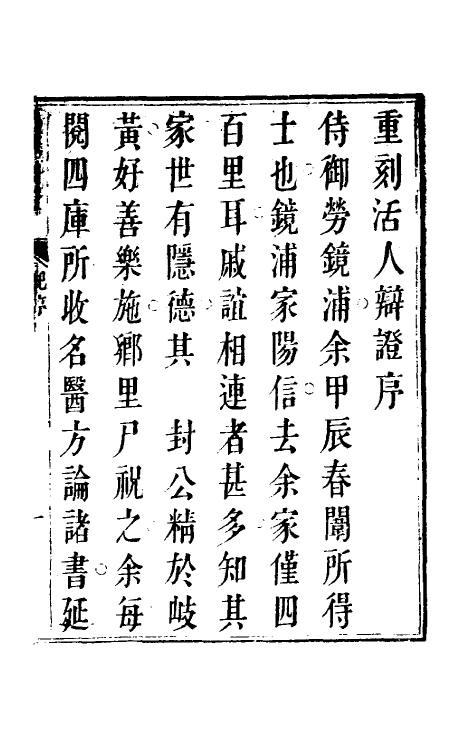 重刻活人辯證序
侍御勞鏡浦余甲辰春闈所得
士也鏡浦家陽信去余家僅四
百里耳戚誼相連者甚多知其
家世有隱德其　封公精於岐
黃好善樂施鄉里尸祝之余每
閱四庫所收名醫方論諸書延
紀序
一